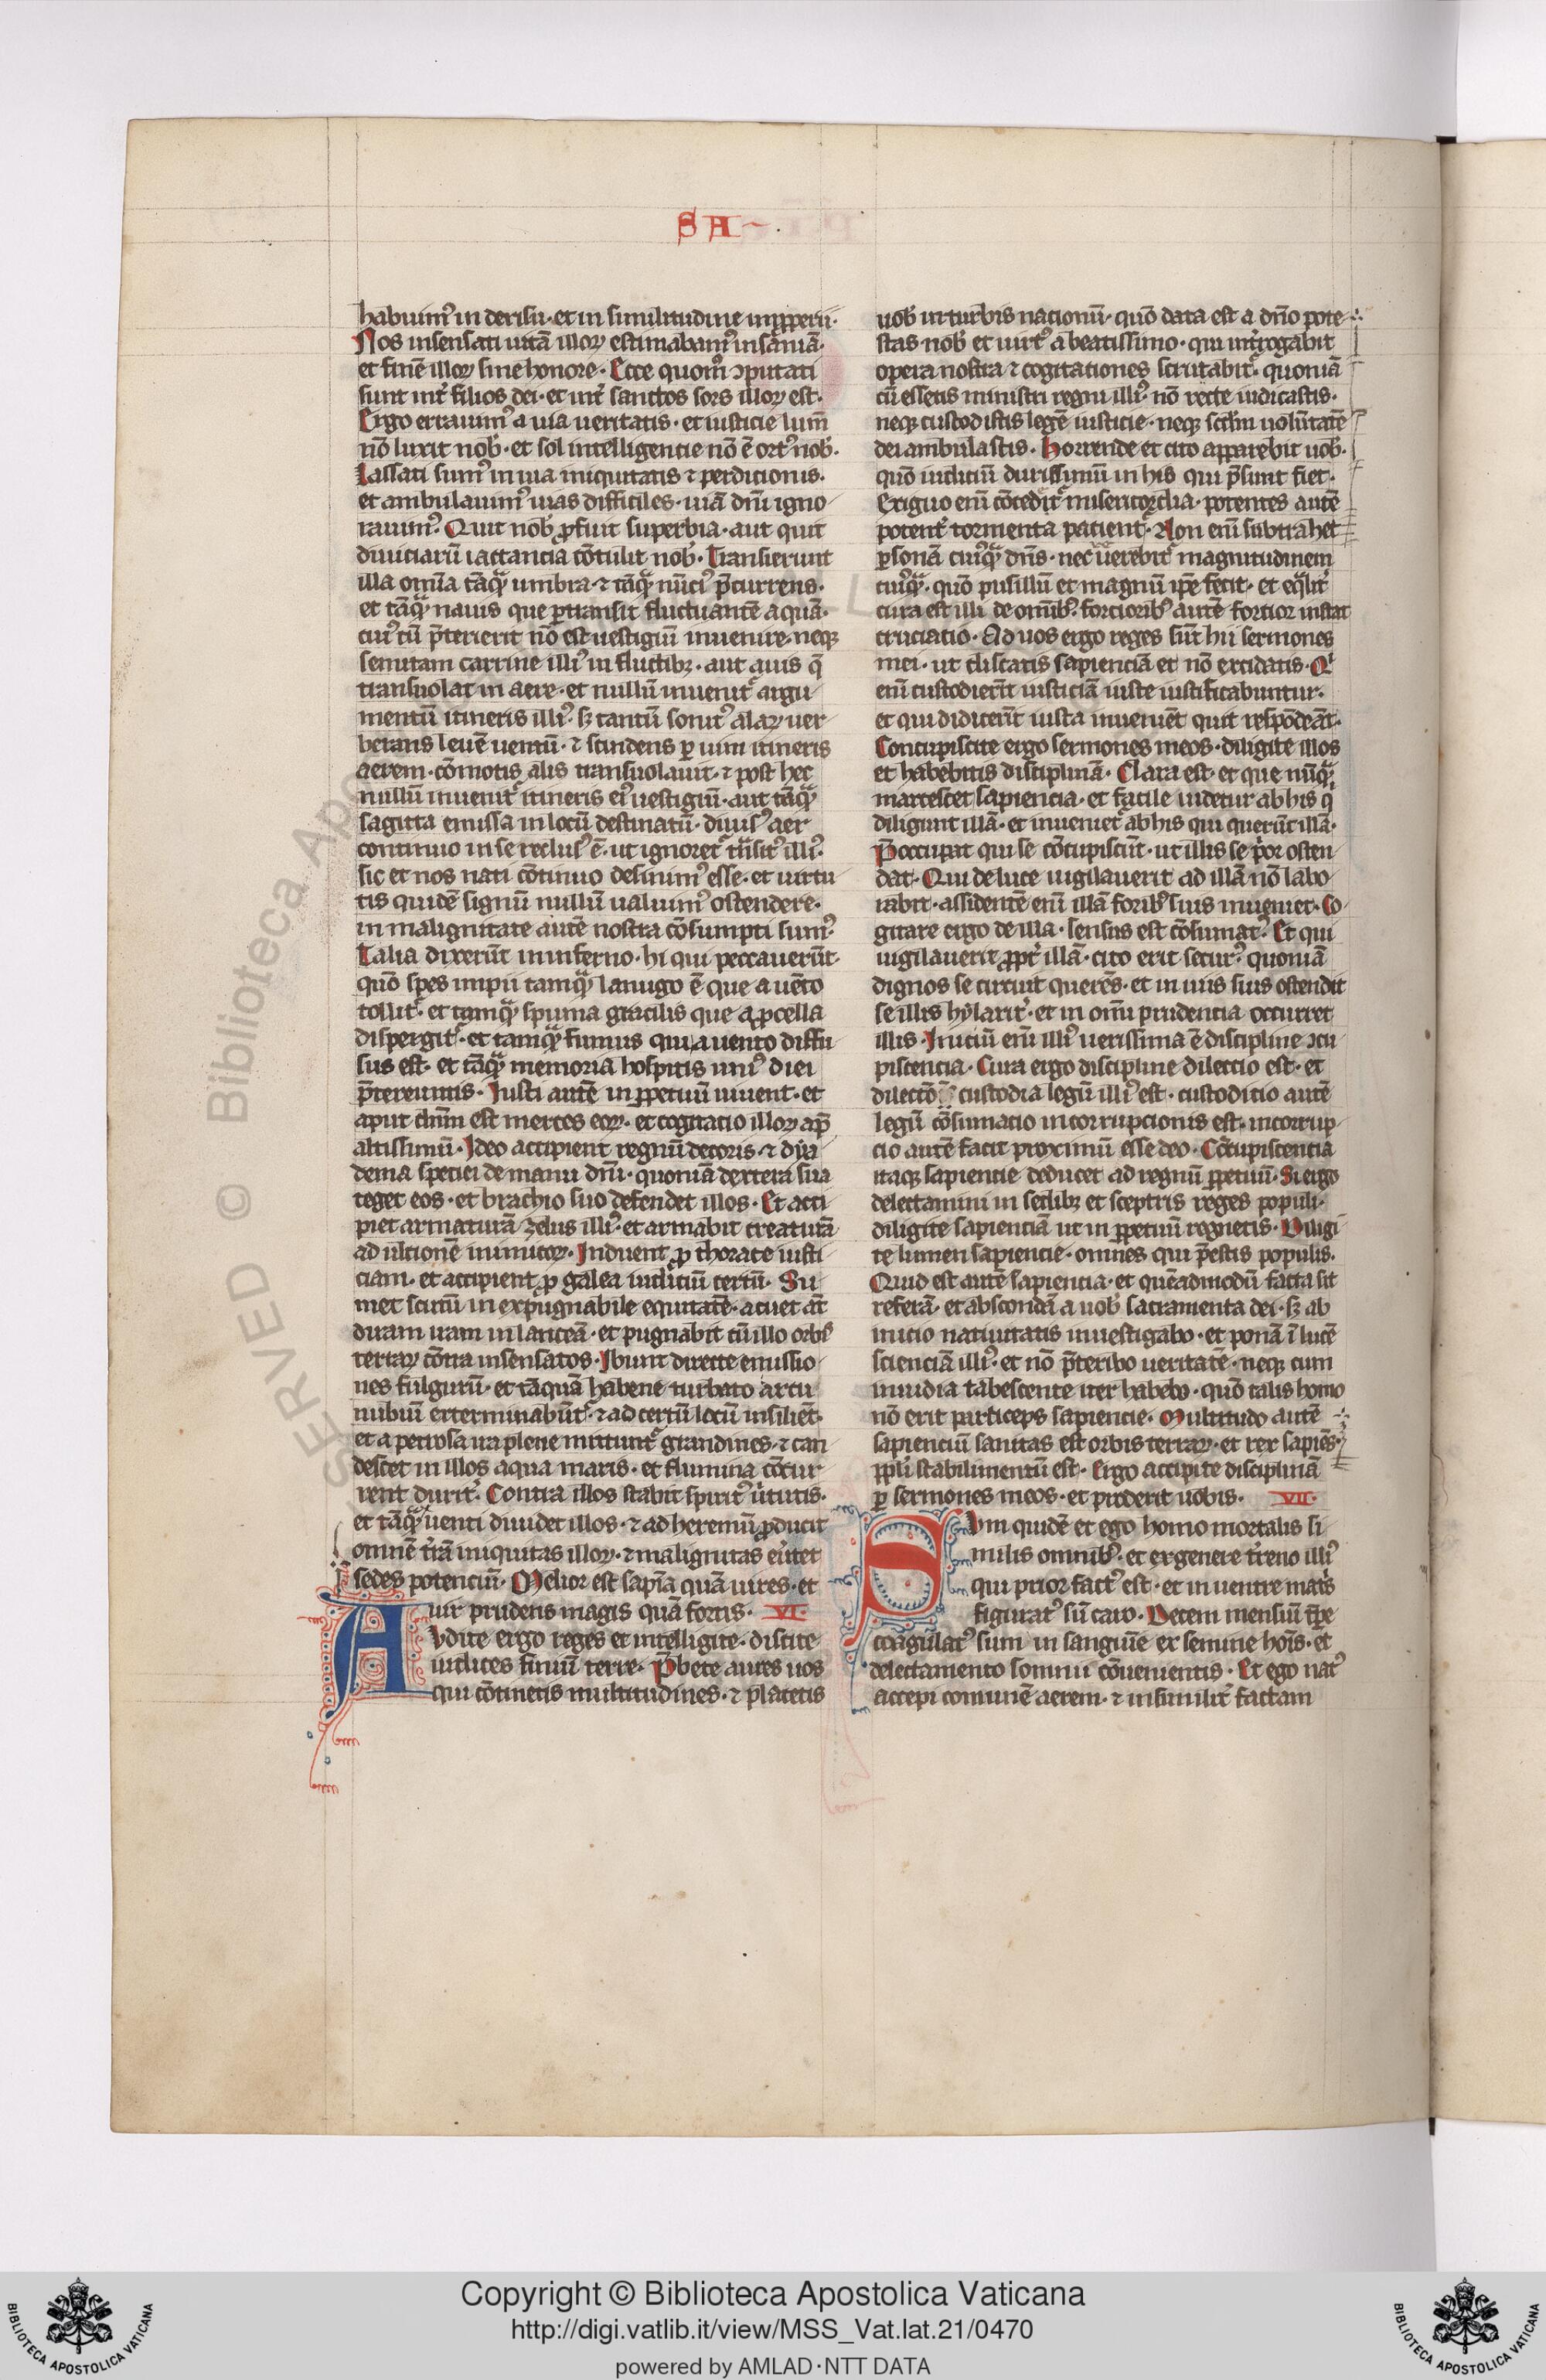 SA
habuimꝰ in derisu · et in similitudine imꝓperii ·
Nos insensati uitā illoꝝ estimabamꝰ insaniā ·
et finē illoꝝ sine honore · Ecce quomō ꝯputati
sunt int̄ filios dei · et int̄ sanctos sors illoꝝ est ·
Ergo errauimꝰ a uia ueritatis · et iusticie lum̄
nō luxit nob̄ · et sol intelligencie nō ē ortꝰ nob̄ ·
Lassati sumꝰ in uia iniquitatis ⁊ perdicionis ·
et ambulauimꝰ uias difficiles · uiā dn̄i igno
rauimꝰ · Quit nob̄ ꝓfuit superbia · aut quit
diuiciarū iactancia cōtulit nob̄ · Transierunt
illa omīa tāqᷓ umbra · ⁊ tāqᷓ nūciꝰ p̄currens ·
et tāqᷓ nauis que ꝑtransit fluctuantē aquā ·
cuiꝰ cū p̄terierit nō est uestigiū inuenire · neqꝫ
semitam carrine illiꝰ in fluctibꝫ · aut auis q̄
transuolat in aere · et nullū inuenit᷑ argu
mentū itineris illiꝰ · sꝫ tantū sonitꝰ alaꝝ uer
berans leuē uentū · ⁊ scindens ꝑ uim itineris
aerem · cōmotis alis transuolauit · ⁊ post hec
nullū inuenit᷑ itineris eiꝰ uestigiū · aut tāqᷓ
sagitta emissa in locū destinatū · diuisꝰ aer
continuo in se reclusꝰ ē · ut ignoret᷑ tn̄sitꝰ illiꝰ ·
sic et nos nati cōtinuo desinimꝰ esse · et uirtu
tis quidē signū nullū ualuimꝰ ostendere ·
in malignitate autē nostra cōsumpti sumꝰ ·
Talia dixerūt in inferno · hi qui peccauerūt ·
quō spes impii tamqᷓ lanugo ē que a uēto
tollit᷑ · et tamqᷓ spuma gracilis que a ꝓcella
dispergit᷑ · et tamqᷓ fumus qui a uento diffu
sus est · et tāqᷓ memoria hospitis uniꝰ diei
p̄tereuntis · Iusti autē in ꝑpetuū uiuent · et
aput dn̄m est merces eoꝝ · et cogitacio illoꝝ ap̄
altissimū · Ideo accipient regnū decoris · ⁊ dya
dema speciei de manu dn̄i · quoniā dextera sua
teget eos · et brachio suo defendet illos · Et acci
piet armaturā zelus illiꝰ · et armabit creaturā
ad ulcionē inimicoꝝ · Induent ꝓ thorace iusti
ciam · et accipient ꝓ galea iudiciū certū · Su
met scutū in expugnabile equitatē · acuet aūt
duram iram in lanceā · et pugnabit cū illo orbis
terraꝝ cōtra insensatos · Ibunt directe emissio
nes fulgurū · et tāquā habene turbato arcu
nubiū exterminabūt᷑ · ⁊ ad certū locū insiliēt ·
et a petrosa ira plene mittunt᷑ grandines · ⁊ can
descet in illos aqua maris · et flumina cōcur
rent durit᷑ · Contra illos stabit spiritꝰ ūtutis ·
et tāqᷓ uenti diuidet illos · ⁊ ad heremū ꝓducit
omnē trā iniquitas illoꝝ · ⁊ malignitas eūtet
sedes potenciū · Melior est sapīa quā uires · et
uir prudens magis quā fortis · VI ·
Audite ergo reges et intelligite · discite
iudices finiū terre · P̄bete aures uos
qui cōtinetis multitudines · ⁊ placetis
uob̄ in turbis nacionū · quō data est a dn̄o pote
stas nob̄ et uirtꝰ a beatissimo · qui int̄rogabit
opera nostra ⁊ cogitationes scrutabit᷑ · quoniā
cū essetis ministri regni illiꝰ · nō recte iudicastis ·
neqꝫ custodistis legē iusticie · neqꝫ scd̄m uolūtatē
dei ambulastis · Horrende et cito apparebit uob̄ ·
quō iudiciū durissimū in his qui p̄sunt fiet ·
Exiguo enī cōcedit᷑ misericordia · potentes autē
potent᷑ tormenta pacient᷑ · Non enī subtrahet
ꝑsonā cuiꝰqᷓ dn̄s · nec uerebit᷑ magnitudinem
cuiꝰqᷓ · quō pusillū et magnū ip̄e fecit · et eqᷓlit᷑
cura est illi de omībꝰ · forcioribꝰ autē fortior instat
cruciatio · Ad uos ergo reges sūt hii sermones
mei · ut discatis sapienciā et nō excidatis · Qi
enī custodierīt iusticiā iuste iustificabuntur ·
et qui didicerīt iusta inueniēt quit respōdeāt ·
Concupiscite ergo sermones meos · diligite illos
et habebitis disciplinā · Clara est · et que nūqᷓ
marcescet sapiencia · et facile uidetur ab his q̇
diligunt illā · et inueniet᷑ ab his qui querūt illā ·
P̄occupat qui se cōcupiscūt · ut illis se p̓or osten
dat · Qui de luce uigilauerit ad illā nō labo
rabit · assidentē enī illā foribꝰ suis inueniet · Co
gitare ergo de illa · sensus est cōsumatꝰ · Et qui
uigilauerit ꝓpt̄ illā · cito erit securꝰ · quoniā
dignos se circuit querēs · et in uiis suis ostendit
se illis hylarit᷑ · et in omī prudencia occurret
illis · Iniciū enī illiꝰ uerissima ē discipline ꝯcu
piscencia · Cura ergo discipline dileccio est · et
dilectō custodia legū illiꝰ est · custoditio autē
legū cōsumacio incorrupcionis est · incorrup
cio autē facit proximū esse deo · Cōcupiscentia
itaqꝫ sapiencie deducet ad regnū ꝑpetuū · Si ergo
delectamini in sedibꝫ et sceptris reges populi ·
diligite sapienciā ut in ꝑpetuū regnetis · Diligi
te lumen sapiencie · omnes qui p̄estis populis ·
Quid est autē sapiencia · et quēadmodū facta sit
referā · et abscondā a uob̄ sacramenta dei · sꝫ ab
inicio natiuitatis inuestigabo · et ponā ī lucē
scienciā illiꝰ · et nō p̄teribo ueritatē · neqꝫ cum
inuidia tabescente iter habebo · quō talis homo
nō erit particeps sapiencie · Multitudo autē
sapienciū sanitas est orbis terraꝝ · et rex sapiēs
ppl̓i stabilimentū est · Ergo accipite disciplinā
ꝑ sermones meos · et proderit uobis · VII ·
Sum quidē et ego homo mortalis si
milis omnibꝰ · et ex genere t̄reno illiꝰ
qui prior factꝰ est · et in uentre mat̄s
figuratꝰ sū caro · Decem mensiū tp̄e
coagulatꝰ sum in sanguīe ex semine hoīs · et
delectamento somni cōuenientis · Et ego natꝰ
accepi comunē aerem · ⁊ in similit᷑ factam
© Biblioteca Apo
SERVED
Copyright © Biblioteca Apostolica Vaticana
http://digi.vatlib.it/view/MSS_Vat.lat.21/0470
powered by AMLAD·NTT DATA
BIBLIOTECA APOSTOLICA VATICANA
BIBLIOTECA APOSTOLICA VATICANA